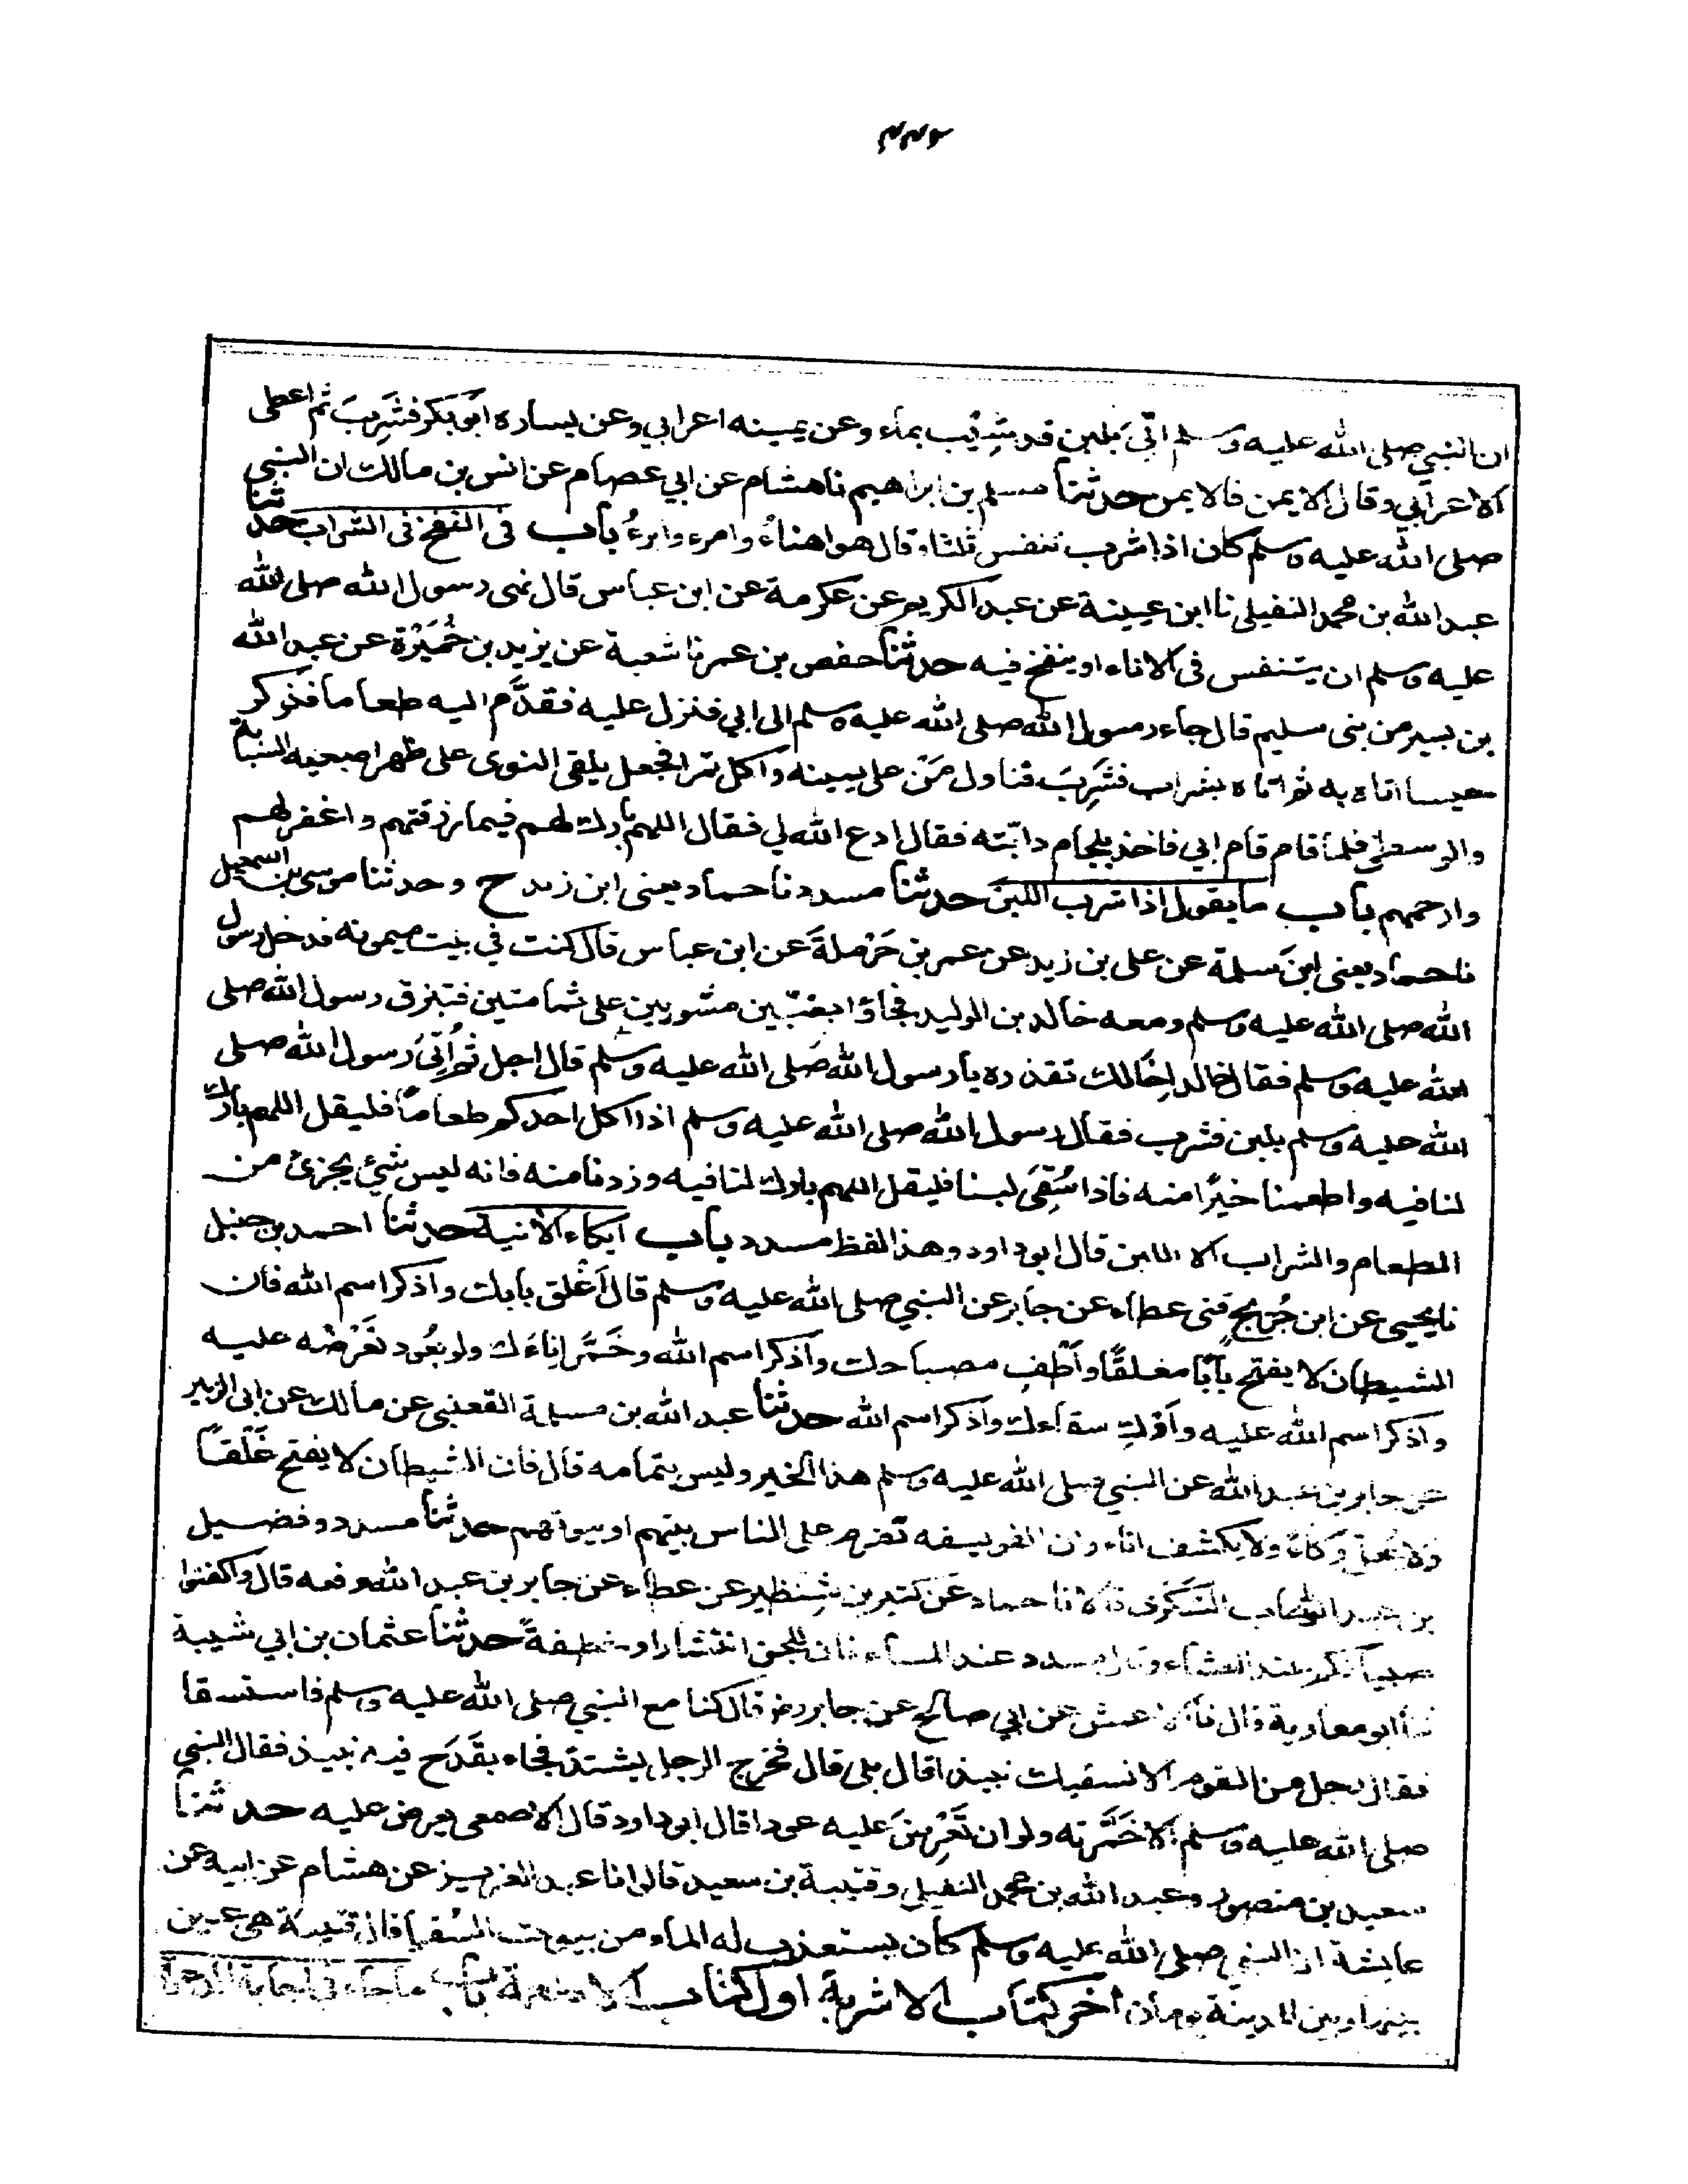 ان النبي صلى الله عليه وسلم اتي بلبن قد شيب بماء وعن يمينه اعرابي وعن يساره ابو بكر فشرب ثم اعطى
الاعرابي وقال الايمن فالايمن حدثنا مسلم بن ابراهيم نا هشام عن ابي عصام عن انس بن مالك ان النبي
صلى الله عليه وسلم كان اذا شرب تنفس ثلثا وقال هو اهنأ وامرء وابرء باب في النفخ في الشراب حدثنا
عبد الله بن محمد النفيلي نا ابن عيينة عن عبد الكريم عن عكرمة عن ابن عباس قال نهى رسول الله صلى الله
عليه وسلم ان يتنفس في الاناء او ينفخ فيه حدثنا حفص بن عمر نا شعبة عن يزيد بن خُمَيْرة عن عبد الله
بن بسر من بني سليم قال جاء رسول الله صلى الله عليه وسلم الى ابي فنزل عليه فقدَّم اليه طعاما فذكر
حيسا اتاه به ثم اتاه بشراب فشَرِبَ فناول مَنْ على يمينه واكل تمرا فجعل يلقي النوى على ظهر اصبعيه السبابة
والوسطى فلما قام قام ابي فاخذ بلجام دابّته فقال ادع الله لي فقال اللهم بارك لهم فيما رزقتهم واغفر لهم
وارحمهم باب ما يقول اذا شرب اللبن حدثنا مسدد نا حماد يعني ابن زيد ح وحدثنا موسى بن اسمعيل
نا حماد يعني ابن سلمة عن على بن زيد عن عمر بن حَرْملةَ عن ابن عباس قال كنت في بيت ميمونه فدخل رسول
الله صلى الله عليه وسلم ومعه خالد بن الوليد فجاؤا بضبّين مشويين على ثمامتين فتبزق رسول الله صلى
الله عليه وسلم فقال خالد اِخَالك تقذره يا رسول الله صلى الله عليه وسلم قال اجل ثم اُتِيَ رسول الله صلى
الله عليه وسلم بلبن فشرب فقال رسول الله صلى الله عليه وسلم اذا اكل احدكم طعاماً فليقل اللهم بارك
لنا فيه واطعمنا خيرًا منه فاذا سُقِىَ لبنا فليقل اللهم بارك لنا فيه وزدنا منه فانه ليس شيئ يجزئ من
الطعام والشراب الا اللبن قال ابو داود وهذا لفظ مسدد باب ايكاء الانية حدثنا احمد بن حنبل
نا يحيى عن ابن جُريج قنى عطاء عن جابر عن النبي صلى الله عليه وسلم قال اَغْلق بابك واذكر اسم الله فان
الشيطان لا يفتح بابًا مغلقًا واَطْفِ مصباحك واذكر اسم الله وخَمَّر اناءَك ولو بعُود تَعْرُضُه عليه
واذكر اسم الله عليه واَوْكِ سقاءك واذكر اسم الله حدثنا عبد الله بن مسلمة القعنبي عن مالك عن ابي الزبير
عن جابر بن عبد الله عن النبي صلى الله عليه وسلم هذا الخبر وليس بتمامه قال فان الشيطان لا يفتح غَلَقًا
ولا يحل وكاءً ولا يكشف اناء وان الفويسقه تضرم على الناس بيتهم او بيوتهم حدثنا مسدد وفضيل
بن عبد الوهاب السُّكَّري قالا نا حماد عن كثير بن شِنْظير عن عطاء عن جابر بن عبد الله رفعه قال واكفتوا
صبيانكم عند العشاء وقال مسدد عند المساء فان للجن انتشارا وخطفةً حدثنا عثمان بن ابي شيبة
نا ابو معاوية قال نا الاعمش عن ابي صالح عن جابر رضه قال كنا مع النبي صلى الله عليه وسلم فاستسقا
فقال رجل من القوم الا نسقيك نبيذا قال بلى قال فخرج الرجل يشتد فجاء بقَدَح فيه نبيذ فقال النبي
صلى الله عليه وسلم الا خَمَّرته ولو ان تَعْرِضَ عليه عودا قال ابو داود قال الاصمعي يعرض عليه حدثنا
سعيد بن منصور وعبد الله بن محمد النفيلي وقتيبة بن سعيد قالوا نا عبد العزيز عن هشام عن ابيه عن
عايشة ان النبي صلى الله عليه وسلم كان يستعذب له الماء من بيوت السُقيا قال قتيبة هي عين
بينها وبين المدينة يومان اخر كتاب الاشربة اول كتاب الاطعمة باب ماجاء في اجابة الدعوة